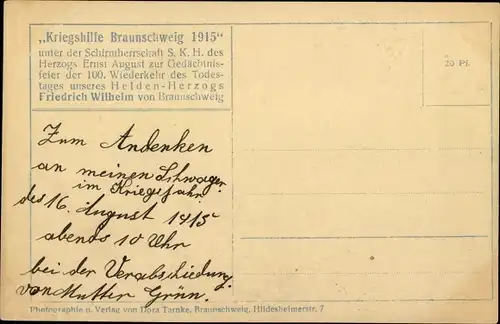 „Kriegshilfe Braunschweig 1915“
unter der Schirmherrschaft S. K. H. des
Herzogs Ernst August zur Gedächtnis-
feier der 100. Wiederkehr des Todes-
tages unseres Helden-Herzogs
Friedrich Wilhelm von Braunschweig
20 Pf.
Zum Andenken
an meinen Schwager
im Kriegsjahr
des 16. August 1915
abends 10 Uhr
bei der Verabschiedung
von Mutter Grün.
Photographie u. Verlag von Dora Tarnke, Braunschweig, Hildesheimerstr. 7